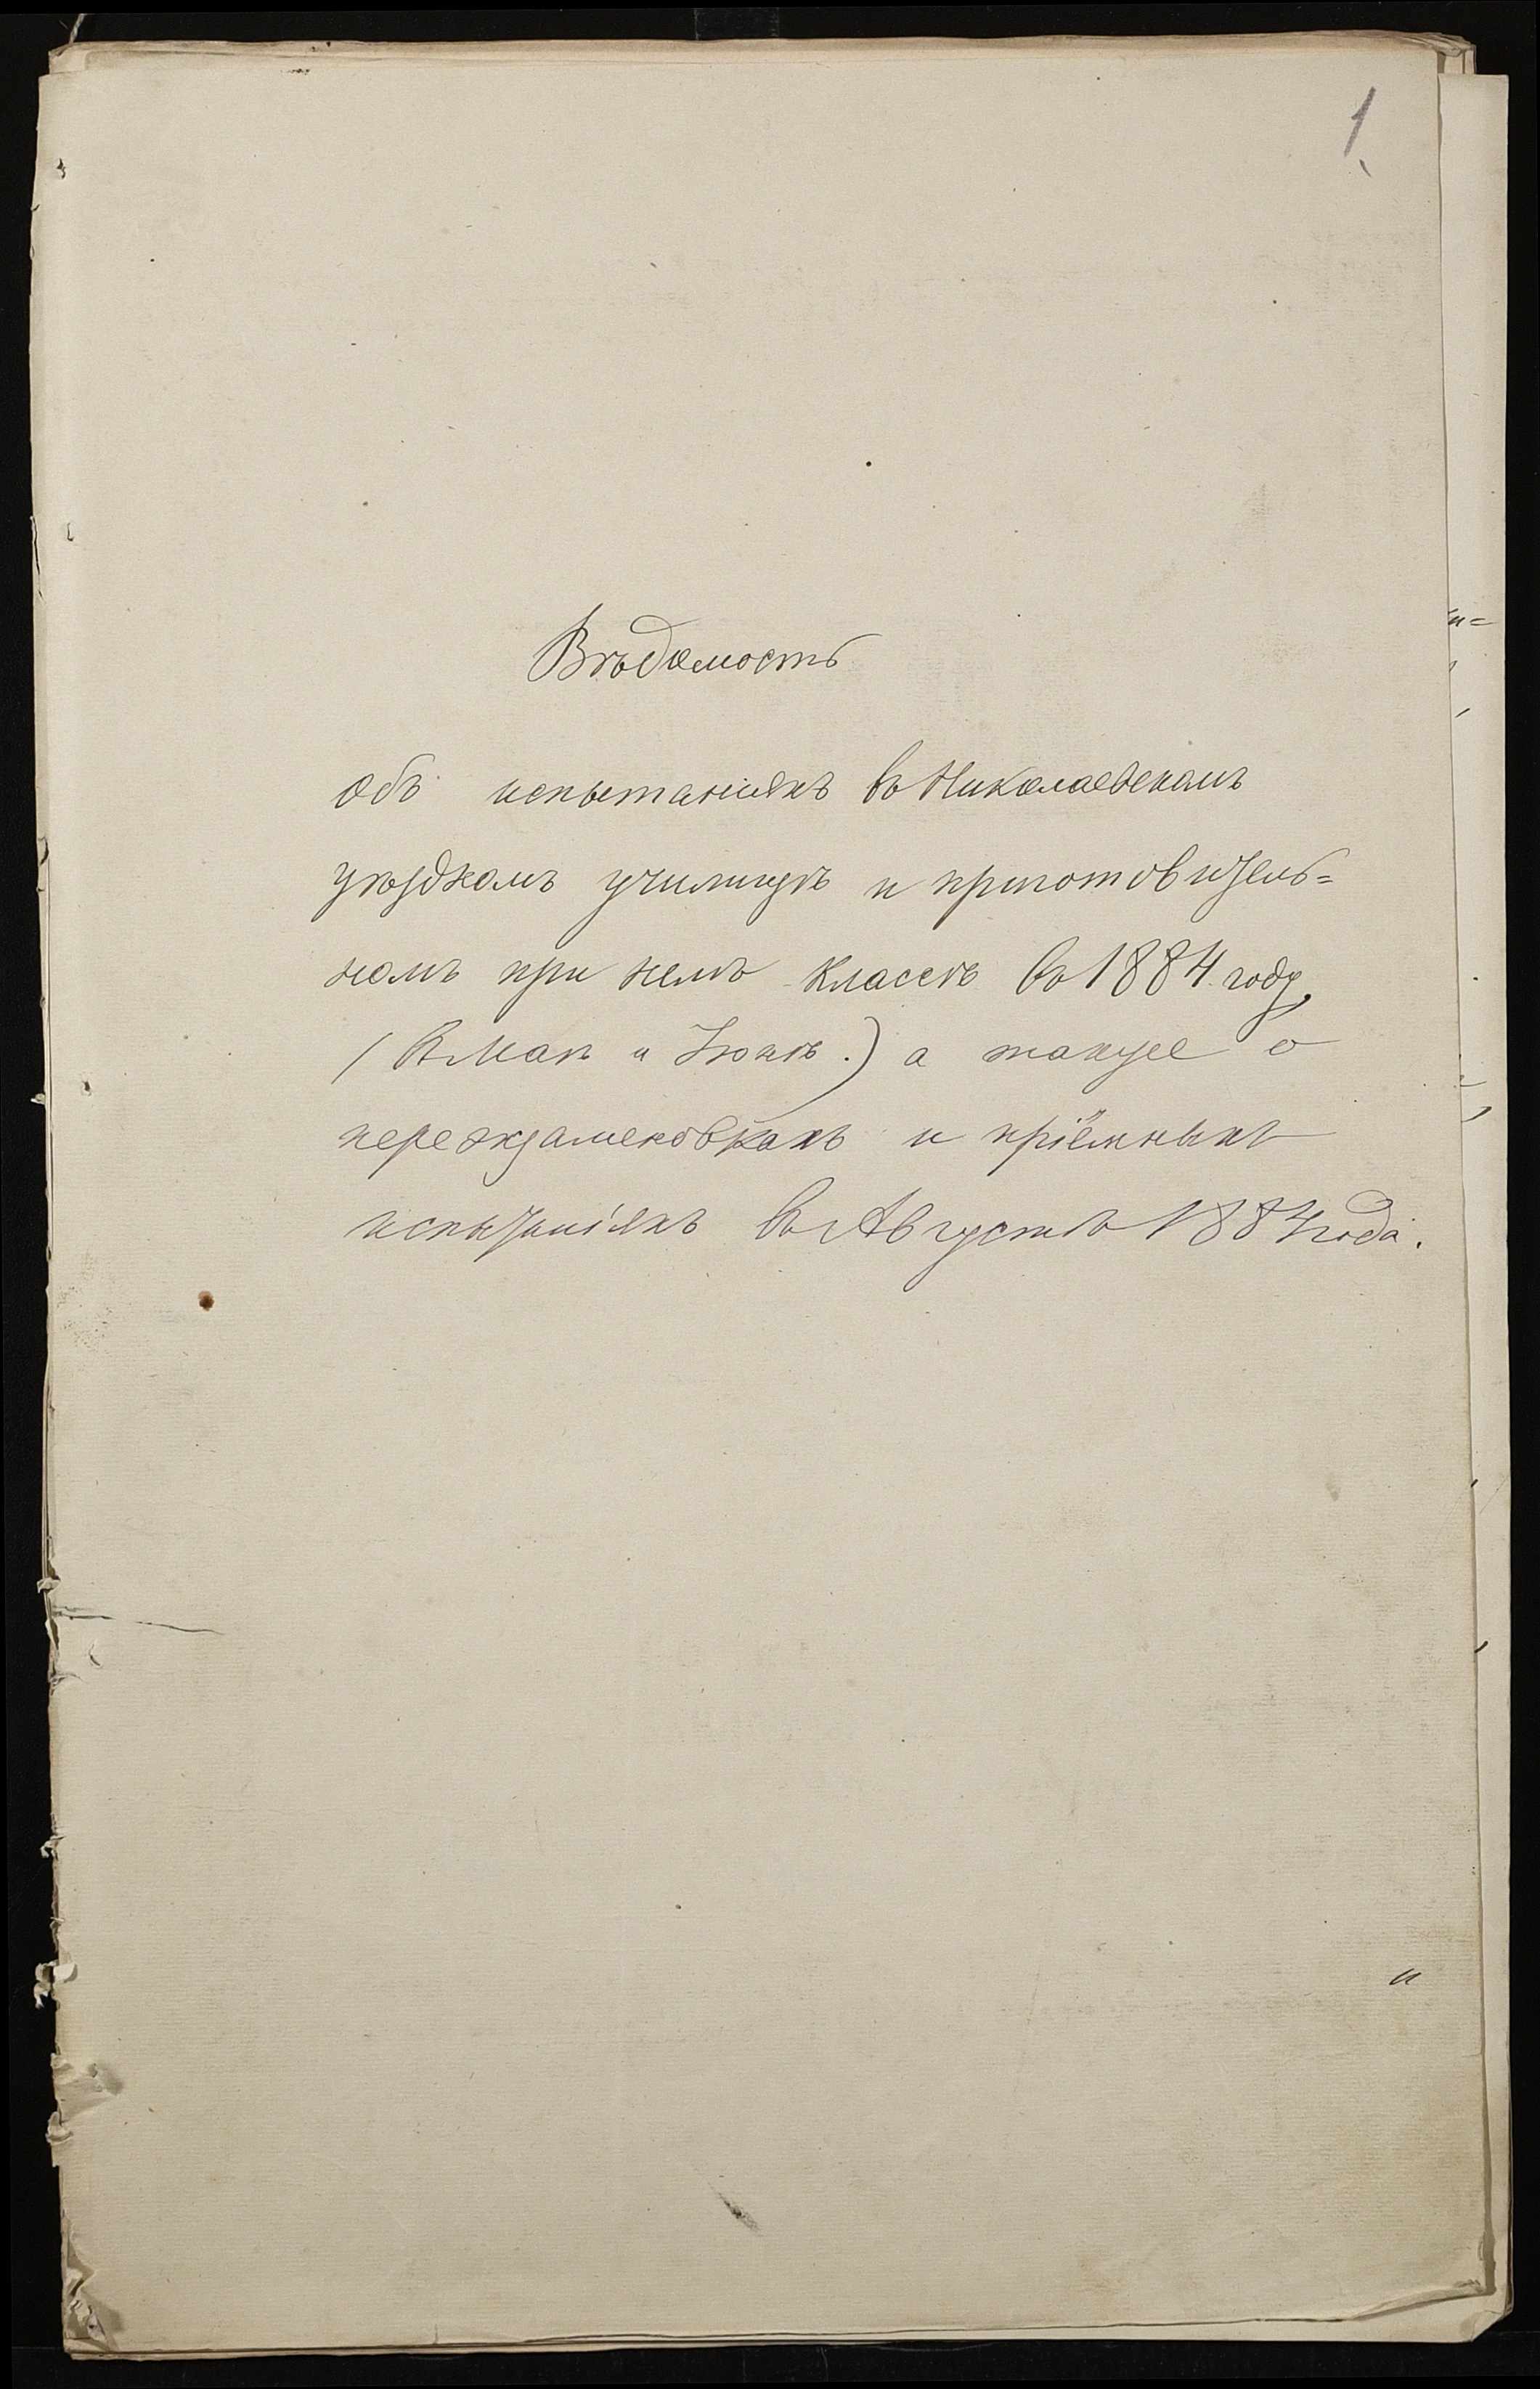 1
Вѣдомость
объ испытаніяхъ въ Николаевскомъ
уѣздномъ училищѣ и приготовитель=
номъ при немъ классѣ въ 1884 году,
(въ Маѣ и Іюнѣ.) а также о
переэкзаменовкахъ и пріёмныхъ
испытаніяхъ въ Августѣ 1884 года.
и